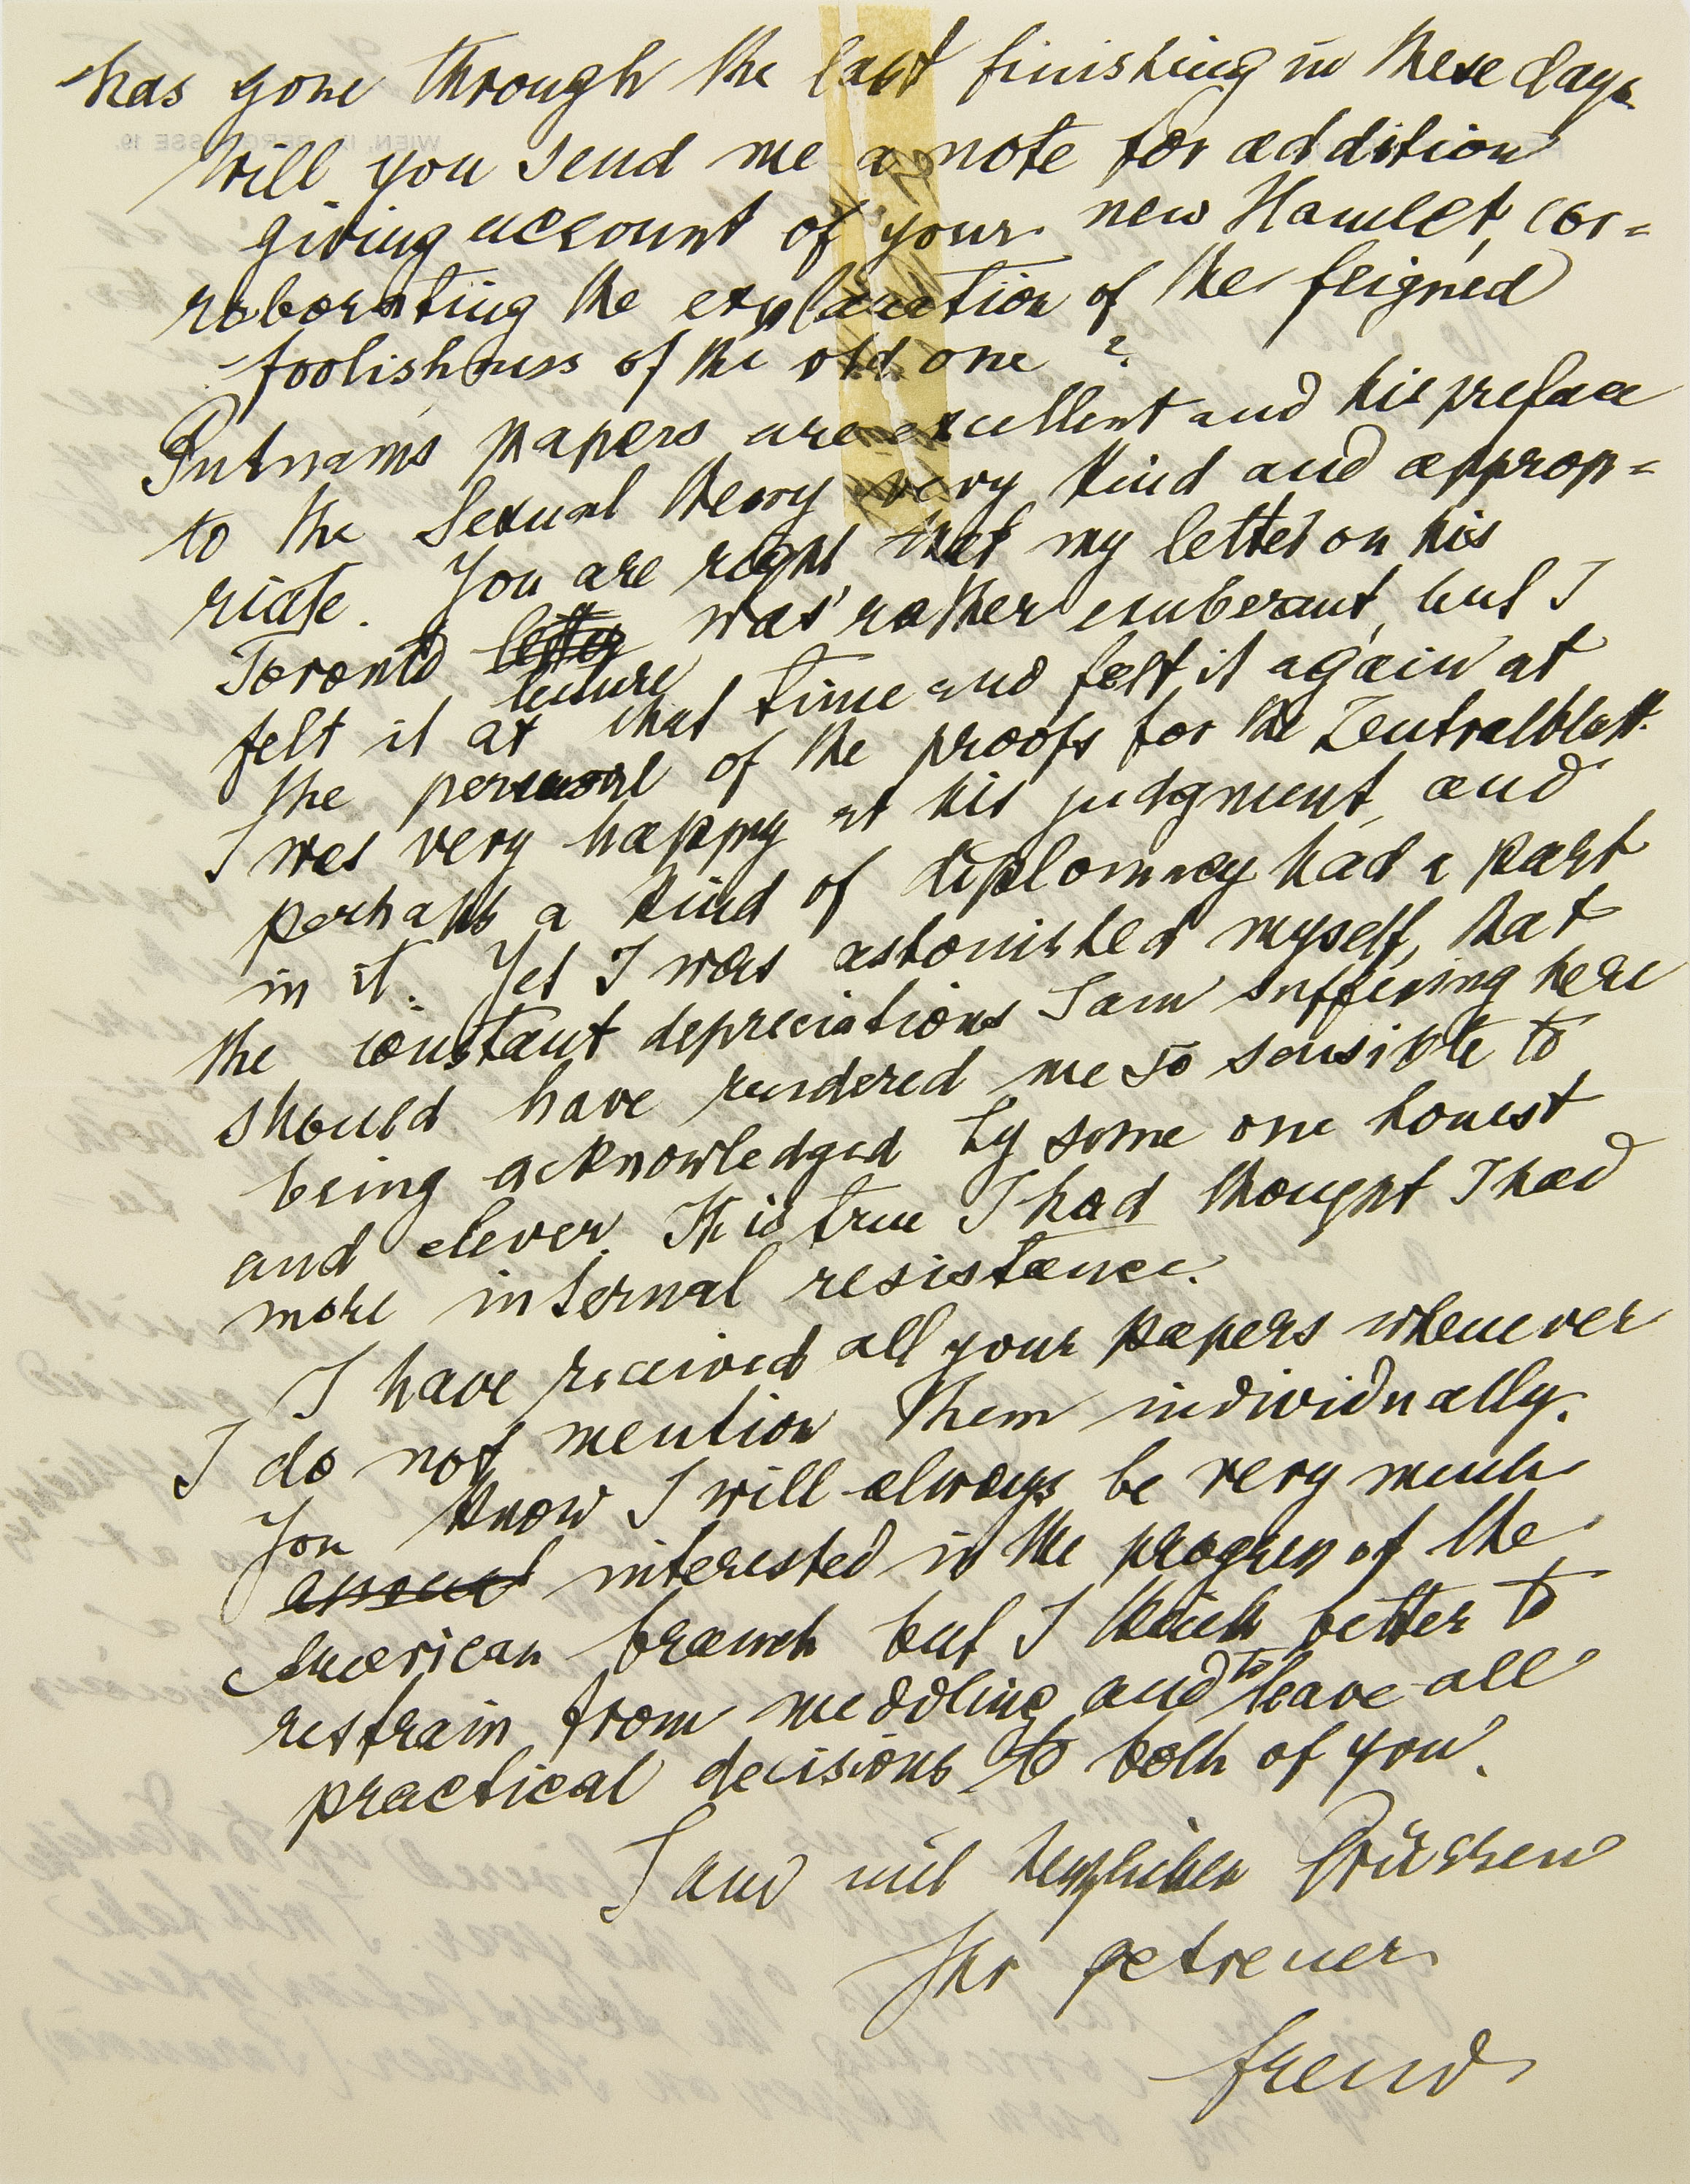 has gone through the last finishing in these days.
Will you send me a note for addition
giving account of your new Hamlet, cor=
roborating the explanation of the feigned
foolishness of the old one?
Putnams papers are excellent and his preface
to the Sexual theory very kind and approp=
riate. You are right, that my letter on his
Toronto letter lecture was rather exuberant, but I
felt it at that time and felt it again at
the perusal of the proofs for the Zentralblatt.
I was very happy at his judgment, and
perhaps a kind of diplomacy had a part
in it. Yet I was astonished myself, that
the constant depreciations I am suffering here
should have rendered me so sensible to
being acknowledged by some one honest
and clever. It is true I had thought I had
more internal resistance.
I have received all your papers whenever
I do not mention them individually.
You know I will always be very much
interested in the progress of the
American branch but I think better to
restrain from meddling and to leave all
practical decisions to both of you.
I am mit herzlichen Grüssen
Ihr getreuer
Freud
WIEN, IX. BERGGASSE 19.